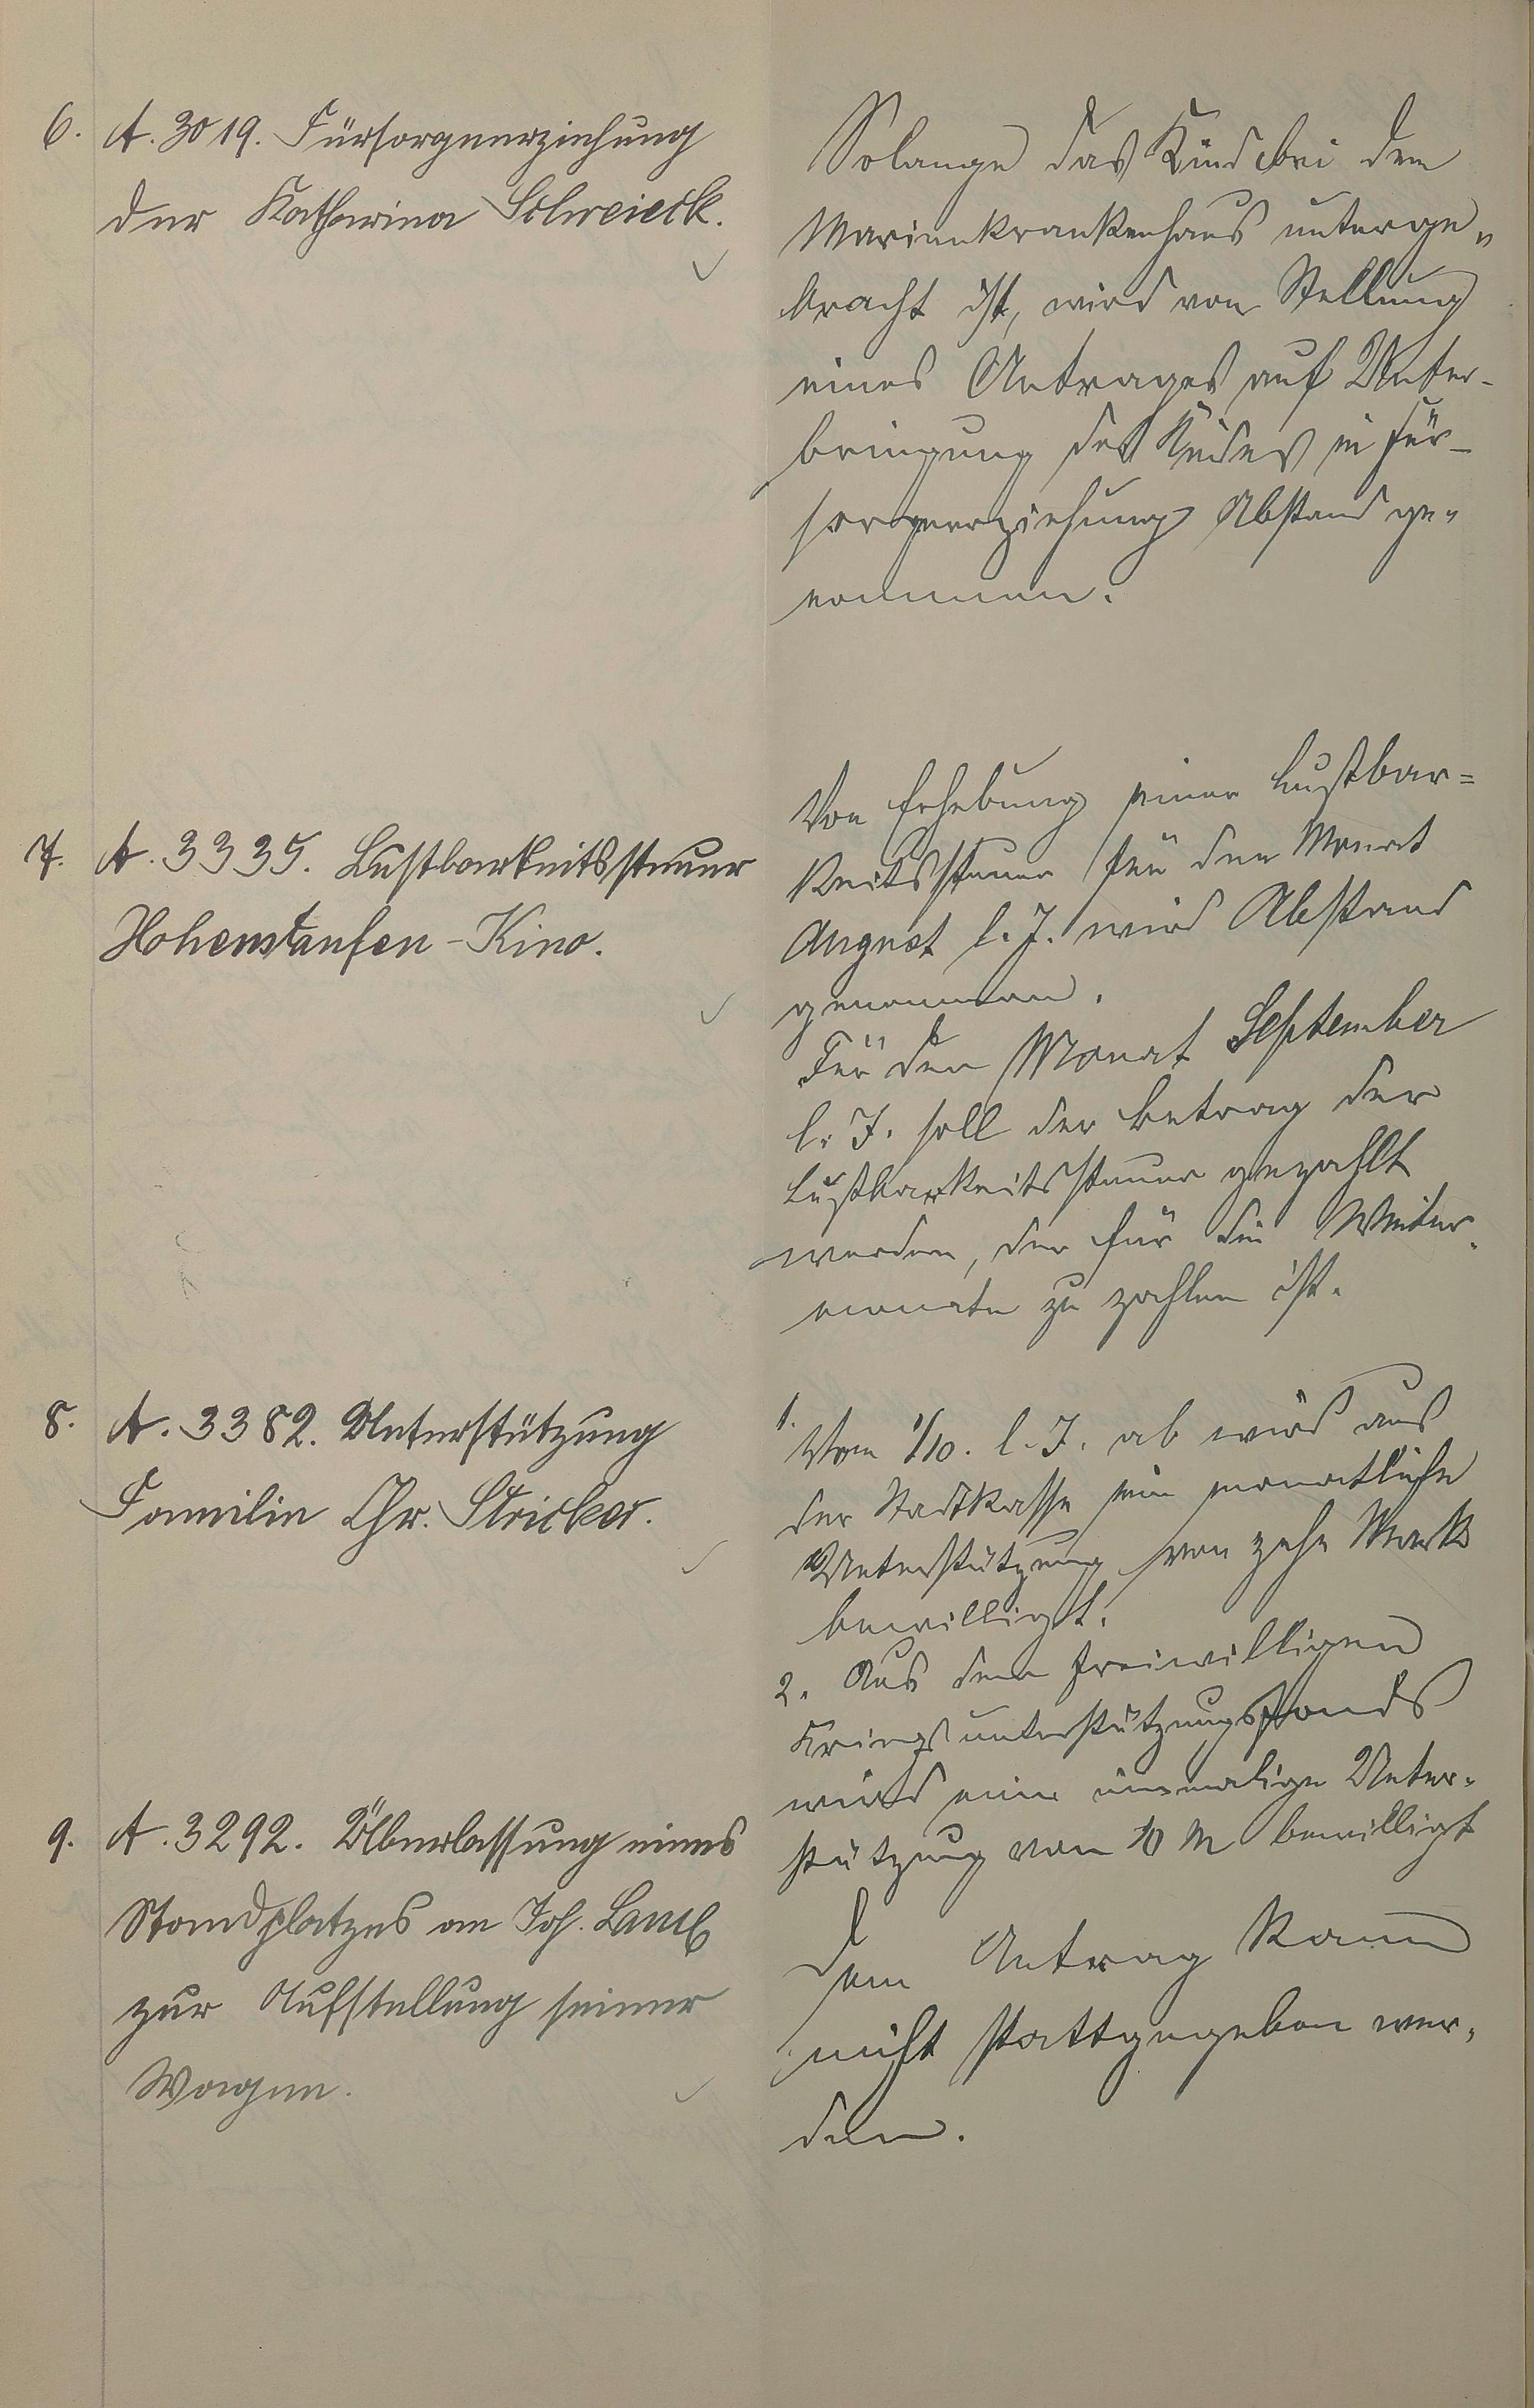 6. A. 3019. Fürsorgeerziehung
der Katharina Schweieck.
Solange das Kind bei dem
Marienkrankenhaus unterge„
bracht ist, wird von Stellung
eines Antrages auf Unter-
bringung des Kindes in Für-
sorgeerziehung Abstand ge„
nommen.
7. A. 3335. Lustbarkeitssteuer
Hohenstaufen-Kino.
Von Erhebung einer Lustbar=
keitssteuer für den Monat
August l. J. wird Abstand
genommen.
Für den Monat September
l. J. soll der Betrag der
Lustbarkeitssteuer gezahlt
werden, der für die Winter„
monate zu zahlen ist.
8. A. 3382. Unterstützung
Familie Chr. Stricker.
1. Vom 1/10. l. J. ab wird aus
der Stadtkasse eine monatliche
Unterstützung von zehn Mark
bewilligt.
2. Aus dem freiwilligen
Kriegsunterstützungsfonds
wird eine einmalige Unter„
stützung von 10 M bewilligt
9. A. 3292. Überlassung eines
Standplatzes an Joh.
zur Aufstellung seiner
Wagen.
Dem Antrag kann
nicht stattgegeben wer„
den.